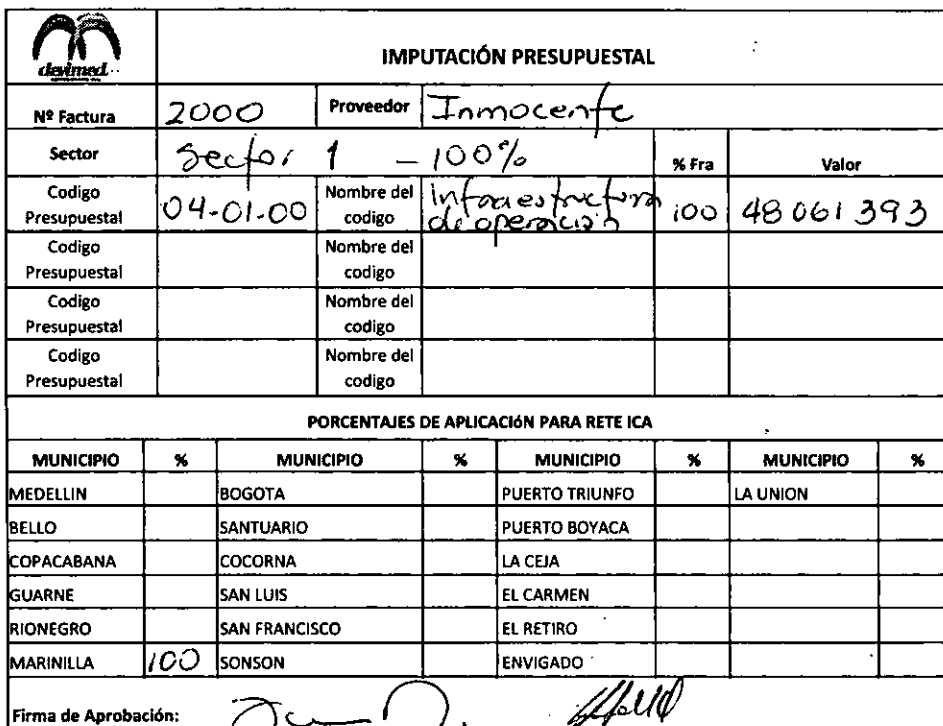 devimed
IMPUTACIÓN PRESUPUESTAL
Nº Factura 2000 Proveedor Inmocente
Sector Sector 1 - 100% % Fra Valor
Codigo Presupuestal 04-01-00 Nombre del codigo infraestructura de operación 100 48 061 393
Codigo Presupuestal Nombre del codigo
Codigo Presupuestal Nombre del codigo
Codigo Presupuestal Nombre del codigo
PORCENTAJES DE APLICACIÓN PARA RETE ICA
MUNICIPIO % MUNICIPIO % MUNICIPIO % MUNICIPIO %
MEDELLIN BOGOTA PUERTO TRIUNFO LA UNION
BELLO SANTUARIO PUERTO BOYACA
COPACABANA COCORNA LA CEJA
GUARNE SAN LUIS EL CARMEN
RIONEGRO SAN FRANCISCO EL RETIRO
MARINILLA 100 SONSON ENVIGADO
Firma de Aprobación: